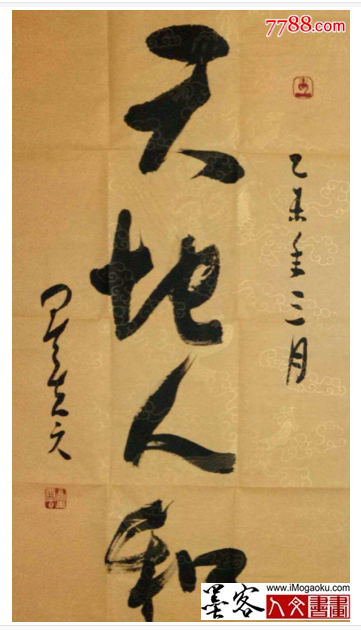 7788.com
乙未年三月
天地人和
墨客
www.iMogaoku.com
人文書畫